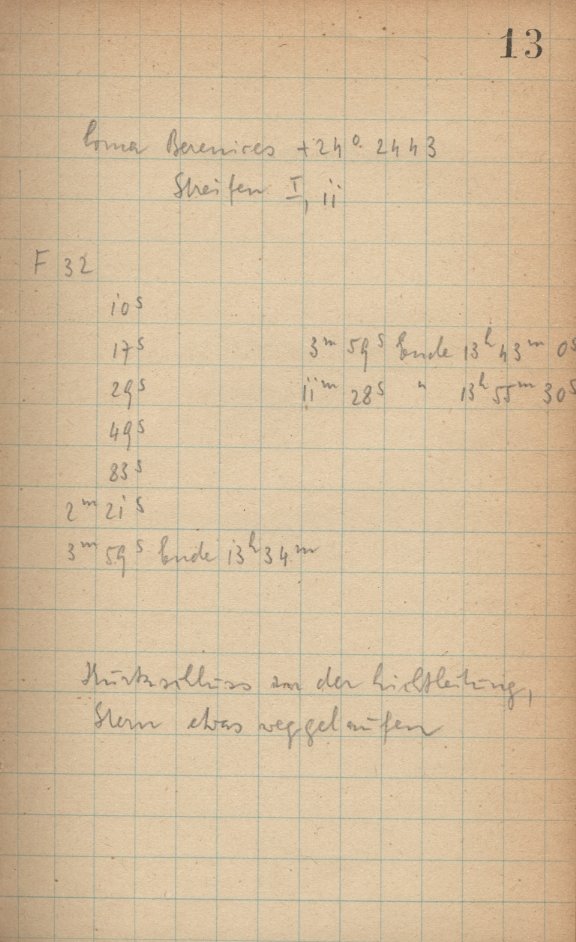 13
Coma Berenices +24° 2443
Streifen I, ii
F 32
10s
17s 3m 59s Ende 13h 43m 0s
29s 11m 28s " 13h 55m 30s
49s
83s
2m 21s
3m 59s Ende 13h 34m
Kurzschluss an der Lichtleitung,
Stern etwas weggelaufen